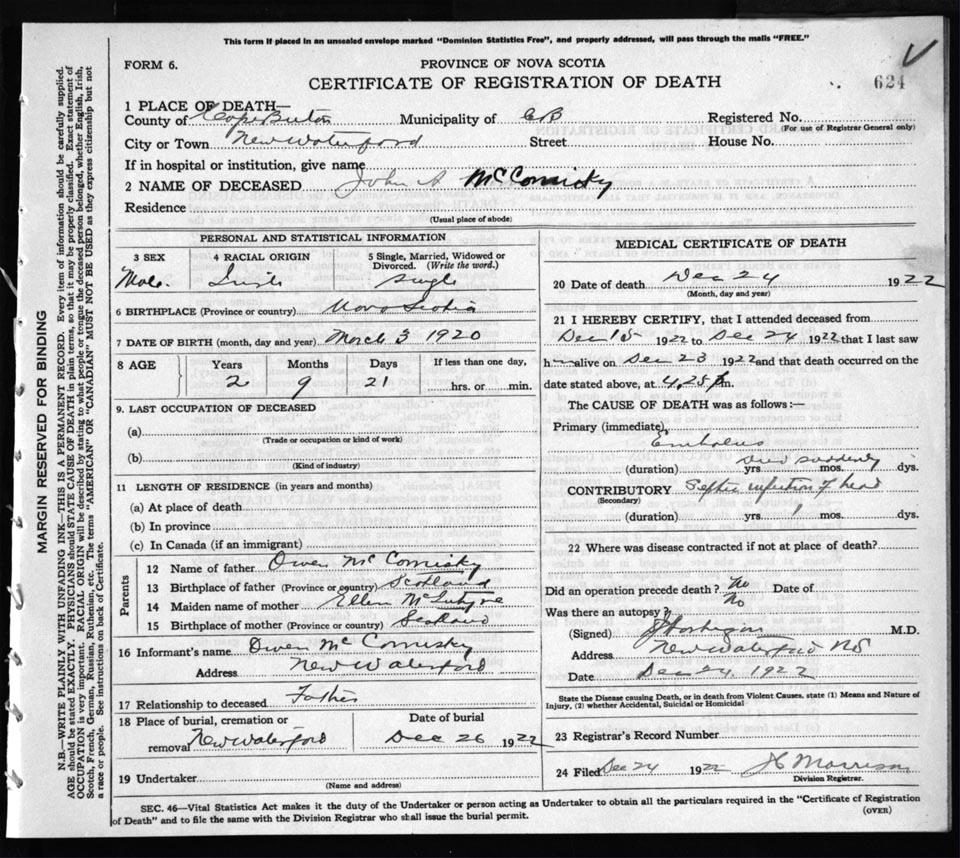 This form if placed in an unsealed envelope marked "Dominion Statistics Free", and properly addressed, will pass through the mails "FREE."
FORM 6.
PROVINCE OF NOVA SCOTIA
624
CERTIFICATE OF REGISTRATION OF DEATH
1 PLACE OF DEATH—
County of Cape Breton Municipality of CB Registered No.
(For use of Registrar General only)
City or Town New Waterford Street House No.
If in hospital or institution, give name
2 NAME OF DECEASED John A McComisky
Residence
(Usual place of abode)
PERSONAL AND STATISTICAL INFORMATION
3 SEX 4 RACIAL ORIGIN 5 Single, Married, Widowed or Divorced. (Write the word.)
Male. Irish single
6 BIRTHPLACE (Province or country) Nova Scotia
7 DATE OF BIRTH (month, day and year) March 3 1920
8 AGE Years Months Days If less than one day,
2 9 21 hrs. or min.
9. LAST OCCUPATION OF DECEASED
(a)
(Trade or occupation or kind of work)
(b)
(Kind of industry)
11 LENGTH OF RESIDENCE (in years and months)
(a) At place of death
(b) In province
(c) In Canada (if an immigrant)
Parents
12 Name of father Owen McComisky
13 Birthplace of father (Province or country) Scotland
14 Maiden name of mother Ellen McIntyre
15 Birthplace of mother (Province or country) Scotland
16 Informant's name Owen McComisky
Address New Waterford
17 Relationship to deceased Father
18 Place of burial, cremation or removal New Waterford
Date of burial Dec 26 1922
19 Undertaker
(Name and address)
MEDICAL CERTIFICATE OF DEATH
20 Date of death Dec 24 1922
(Month, day and year)
21 I HEREBY CERTIFY, that I attended deceased from
Dec 15 1922 to Dec 24 1922 that I last saw
h alive on Dec 23 1922 and that death occurred on the
date stated above, at 4.25 P m.
The CAUSE OF DEATH was as follows:—
Primary (immediate)
Embolus
died suddenly
(duration) yrs. mos. dys.
CONTRIBUTORY Septic infection of head
(Secondary)
(duration) yrs. mos. dys.
22 Where was disease contracted if not at place of death?
Did an operation precede death? No Date of
Was there an autopsy? No
(Signed) M.D.
Address New Waterford NS
Date Dec 24, 1922
State the Disease causing Death, or in death from Violent Causes, state (1) Means and Nature of
Injury, (2) whether Accidental, Suicidal or Homicidal
23 Registrar's Record Number
24 Filed Dec 24 1922 Morrison
Division Registrar.
SEC. 46—Vital Statistics Act makes it the duty of the Undertaker or person acting as Undertaker to obtain all the particulars required in the "Certificate of Registration
of Death" and to file the same with the Division Registrar who shall issue the burial permit.
(OVER)
MARGIN RESERVED FOR BINDING
N.B.—WRITE PLAINLY WITH UNFADING INK—THIS IS A PERMANENT RECORD. Every item of information should be carefully supplied.
AGE should be stated EXACTLY. PHYSICIANS should STATE CAUSE OF DEATH in plain terms, so that it may be properly classified. Exact statement of
OCCUPATION is very important. RACIAL ORIGIN will be described by stating to what people or tongue the deceased person belonged, whether English, Irish,
Scotch, French, German, Russian, Ruthenian, etc. The terms "AMERICAN" OR "CANADIAN" MUST NOT BE USED as they express citizenship but not
a race or people. See instructions on back of Certificate.